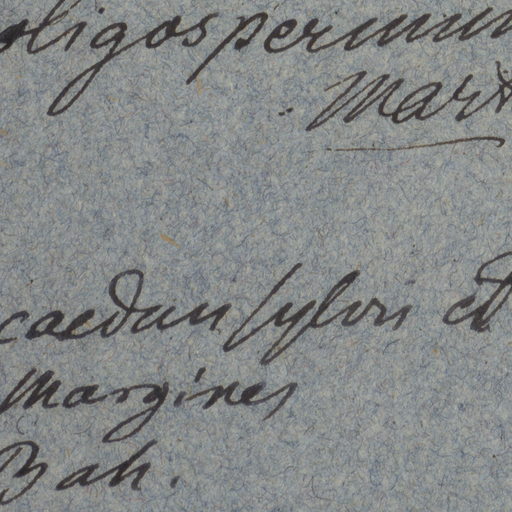 oligospermum
Mart
caeduis sylvis et
Margines
Bah.